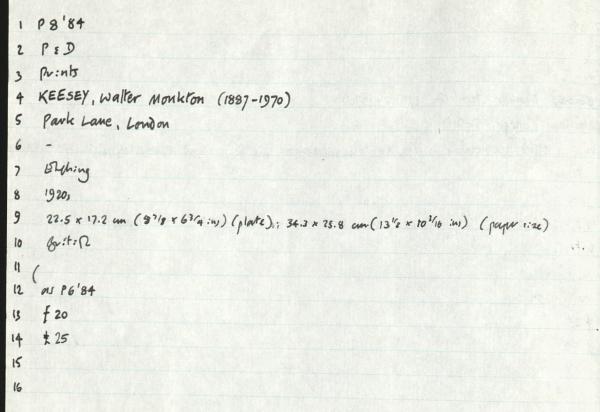 1 P 8 '84
2 P & D
3 Prints
4 KEESEY, Walter Monkton (1887-1970)
5 Park Lane, London
6 -
7 Etching
8 1920s
9 22.5 x 17.2 cm (8 7/8 x 6 3/4 ins) (plate); 34.3 x 25.8 cm (13 1/2 x 10 3/16 ins) (paper size)
10 British
11 (
12 as P6 '84
13 f 20
14 £ 25
15
16